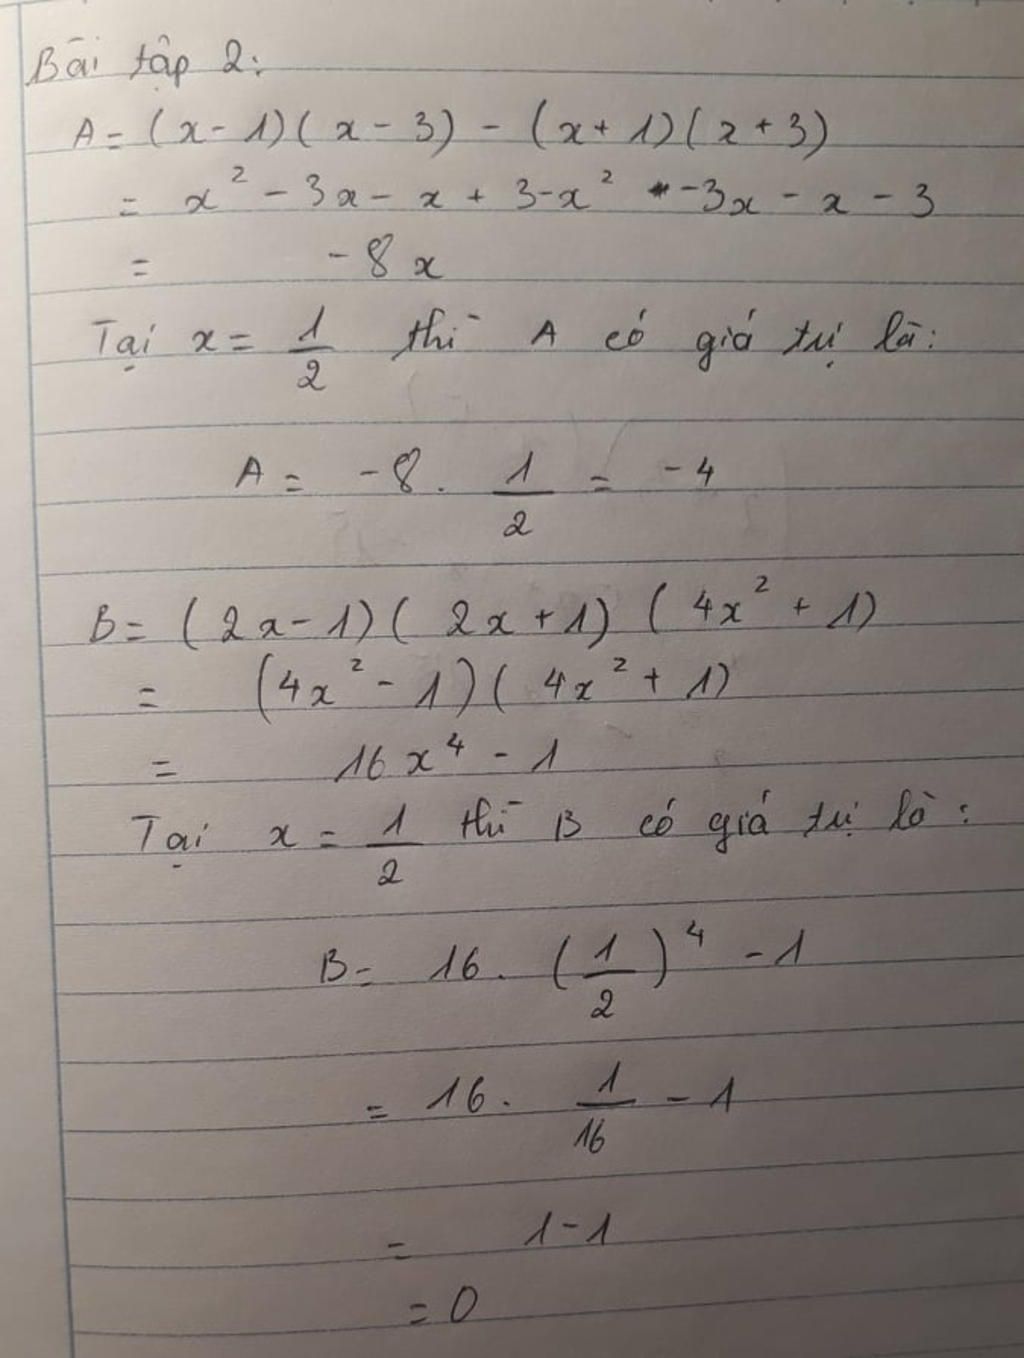 Bài tập 2:
A = (x - 1)(x - 3) - (x + 1)(x + 3)
= x² - 3x - x + 3 - x² - 3x - x - 3
= - 8x
Tại x = 1/2 thì A có giá trị là:
A = - 8 . 1/2 = - 4
B = (2x - 1)(2x + 1)(4x² + 1)
= (4x² - 1)(4x² + 1)
= 16x⁴ - 1
Tại x = 1/2 thì B có giá trị là:
B = 16 . (1/2)⁴ - 1
= 16 . 1/16 - 1
= 1 - 1
= 0